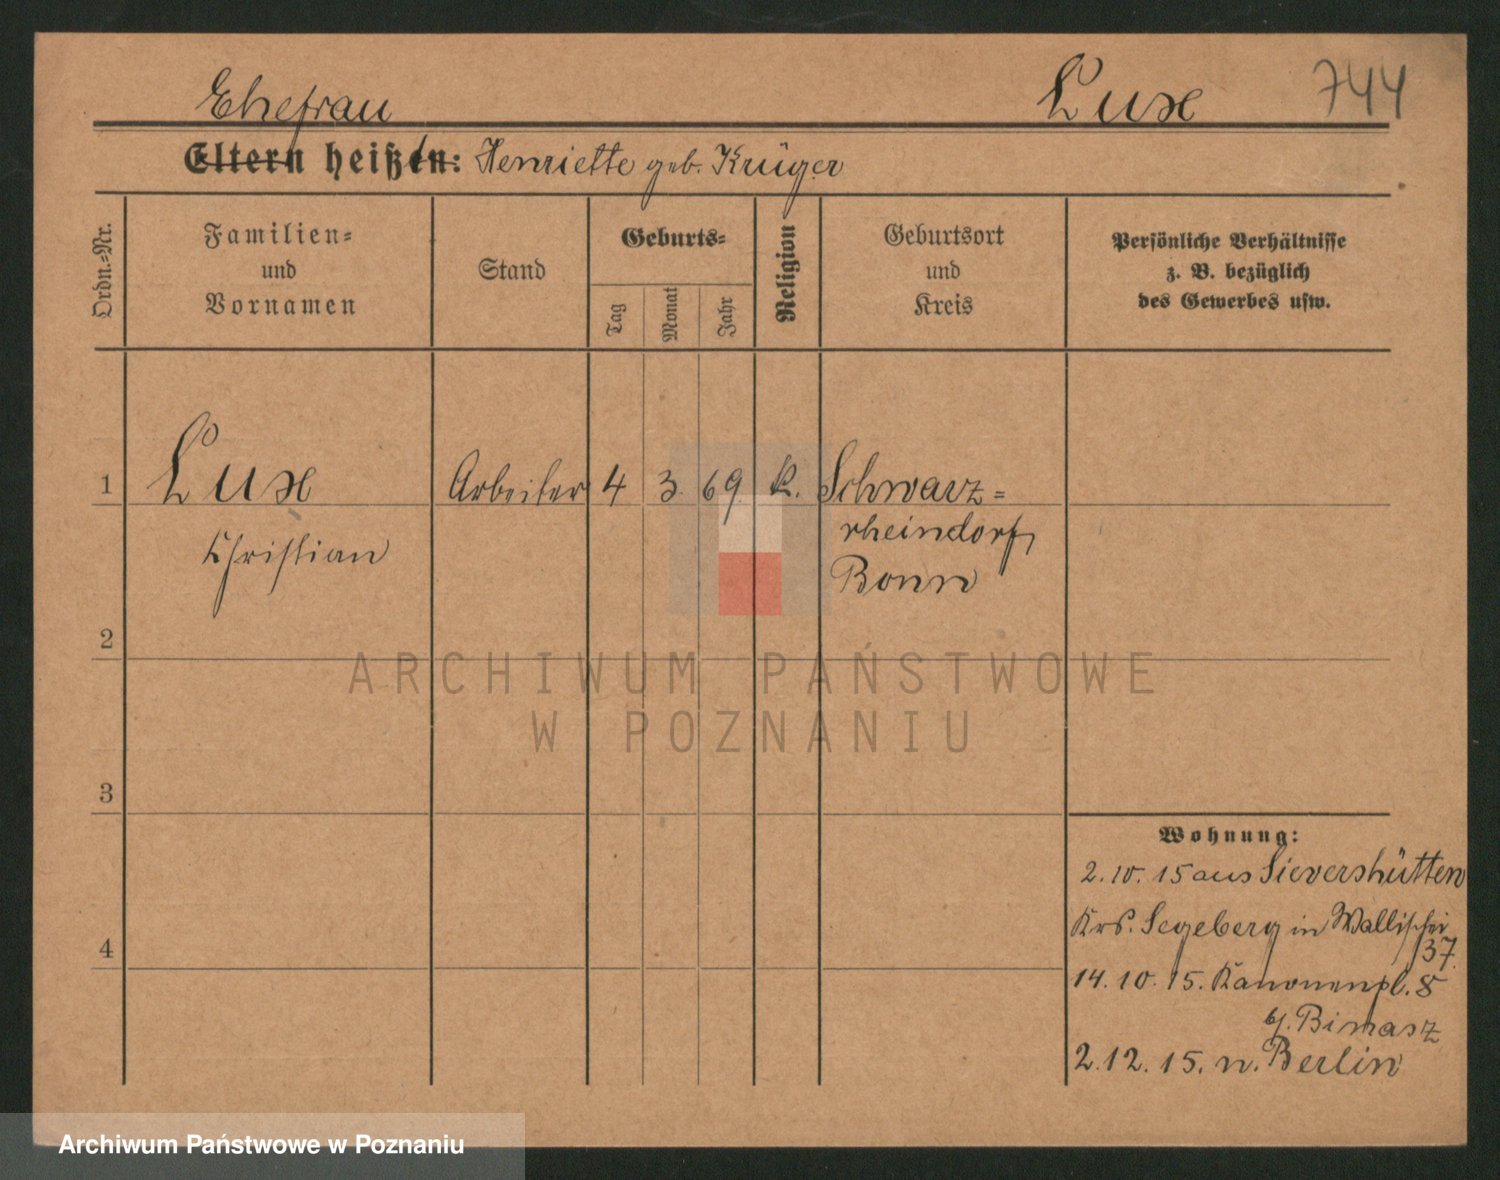 Ehefrau Lux 744
Eltern heißen: Henriette geb. Krüger
Ordn.=Nr.
Familien=
und
Vornamen
Stand
Geburts=
Tag
Monat
Jahr
Religion
Geburtsort
und
Kreis
Persönliche Verhältnisse
z. B. bezüglich
des Gewerbes usw.
1 Lux Arbeiter 4 3. 69. K. Schwarz=
Christian rheindorf,
Bonn
2
3
4
Wohnung:
2.10.15 aus Sievershütten
Krs. Segeberg in Wallischei
37.
14.10.15. Kanonenpl. 8
bj. Bimasz
2.12.15. n. Berlin
ARCHIWUM PAŃSTWOWE
W POZNANIU
Archiwum Państwowe w Poznaniu